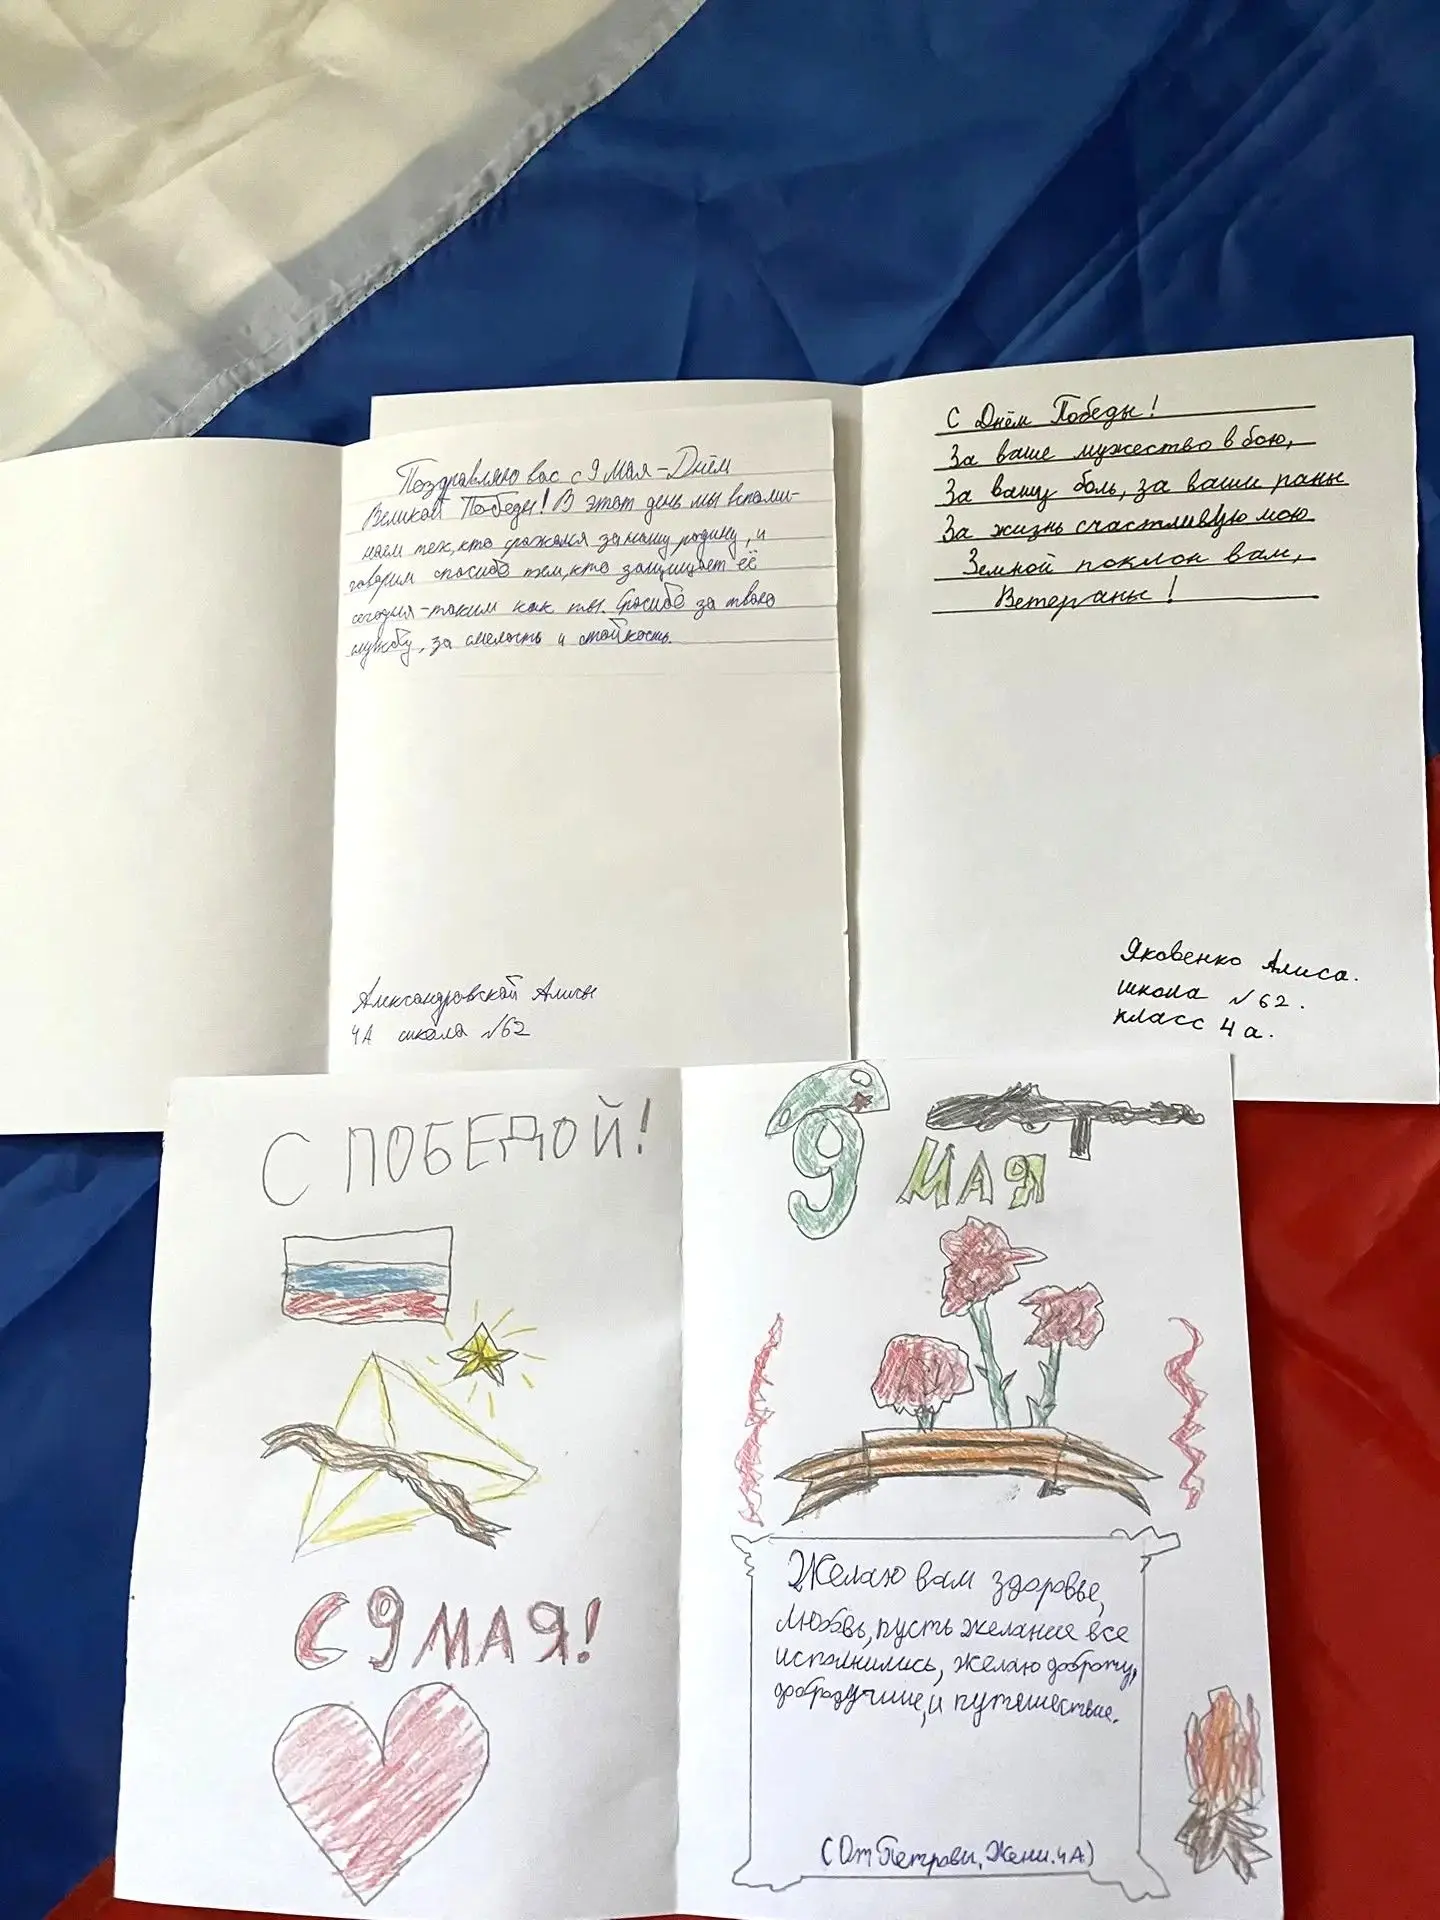 Поздравляю вас с 9 мая - Днём
Великой Победы! В этот день мы вспоми-
наем тех, кто сражался за нашу родину, и
говорим спасибо тем, кто защищает её
сегодня - таким как ты. Спасибо за твою
службу, за смелость и стойкость.
Александровской Алисы
4А школа №62
С Днём Победы!
За ваше мужество в бою,
За вашу боль, за ваши раны
За жизнь счастливую мою
Земной поклон вам,
Ветераны!
Яковенко Алиса.
школа №62.
класс 4а.
С ПОБЕДОЙ!
С 9 МАЯ!
9 МАЯ
Желаю вам здоровье,
любовь, пусть желание все
исполнились, желаю доброту,
и путешествие.
(От Петровы, Жени. 4А)